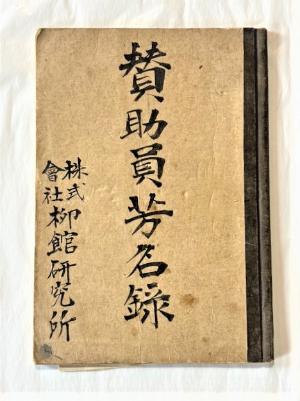 賛助員芳名録
株式會社柳舘研究所